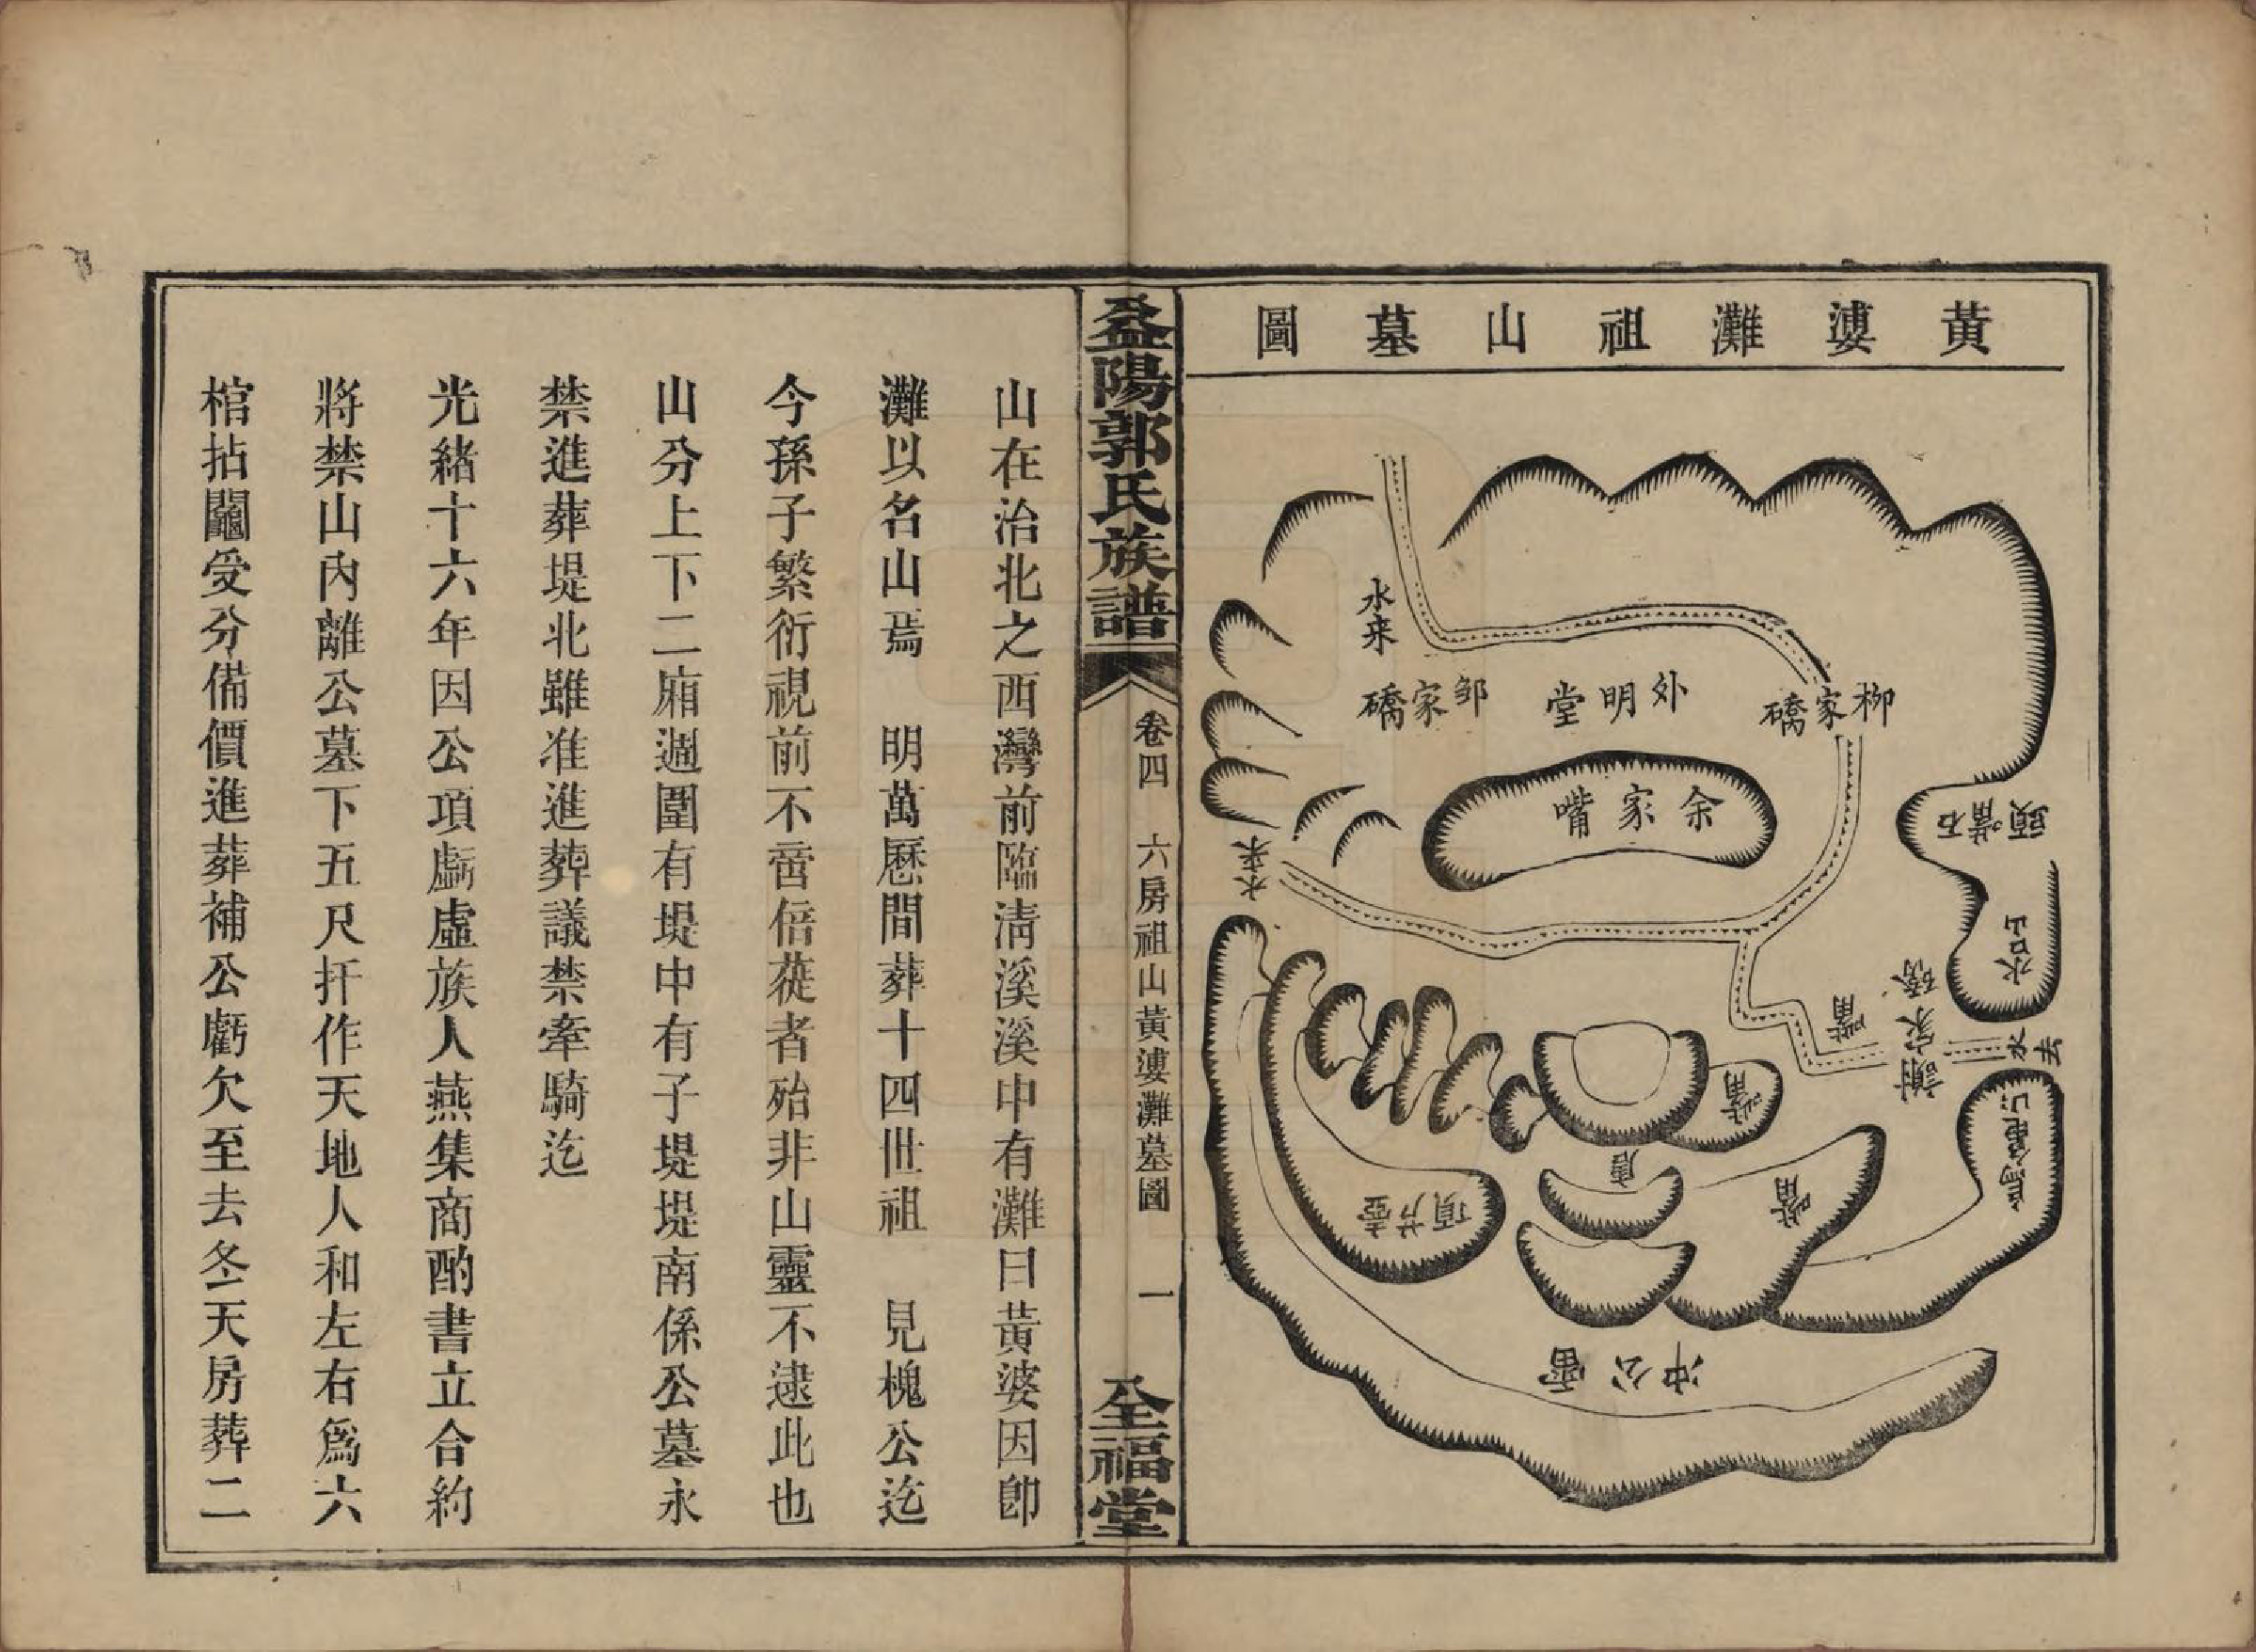 黃㜑灘祖山墓圖
水来
邹家礄
外明堂
柳家礄
余家嘴
石嘴頭
水来
水口山
謝家磅
嘴
水去
龜山
嘴
唐
嘴
雷公冲
益陽郭氏族譜
卷四
六房祖山黃㜑灘墓圖
一
全福堂
山在治北之西灣前臨淸溪溪中有灘曰黃婆因卽
灘以名山焉　明萬歷間葬十四世祖　見槐公迄
今孫子繁衍視前不啻倍蓰者殆非山靈不逮此也
山分上下二廂週圍有堤中有子堤堤南係公墓永
禁進葬堤北雖准進葬議禁牽騎迄
光緒十六年因公項虧虛族人燕集商酌書立合約
將禁山內離公墓下五尺扦作天地人和左右爲六
棺拈鬮受分備價進葬補公虧欠至去冬天房葬二